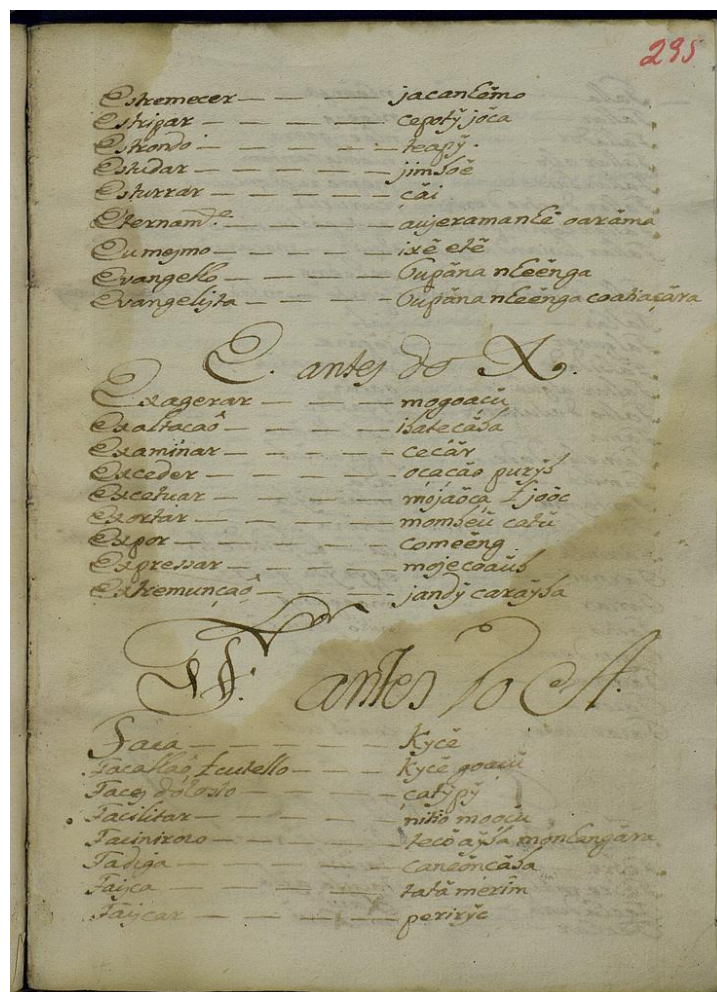 295
Estremecer — — — — jacanhémo
Estrigar — — — — cepotỹ jóca
Estrondo — — — — teapỹ.
Estudar — — — — jimboé
Esturrar — — — — cái
Eternam.te — — — — aujeramanhé oaráma
Eu mesmo — — — — ixé eté
Evangelho — — — — Tupána nheénga
Evangelista — — — — Tupána nheénga coatiaçára
E. antes do X.
Exagerar — — — — mogoacú
Exaltacaô — — — —
Examinar — — — — cecár
Exceder — — — — ocacáo
Excetuar — — — — mojaóca
Exortar — — — — mombeú catú
Expor — — — — comeéng
Expressar — — — — mojecoaub
Extremunçaô — — — — jandỹ caraýba
F. antes do A.
Faca — — — — Kycé
Facalhaô, cutello — — — — Kycé goacú
Faces do rosto — — — — catỹpỹ
Facilitar — — — — nitio
Facinirozo — — — — tecó aýba monhangára
Fadiga — — — — caneóncába
Faisca — — — — tatá merím
Faiscar — — — — periryc